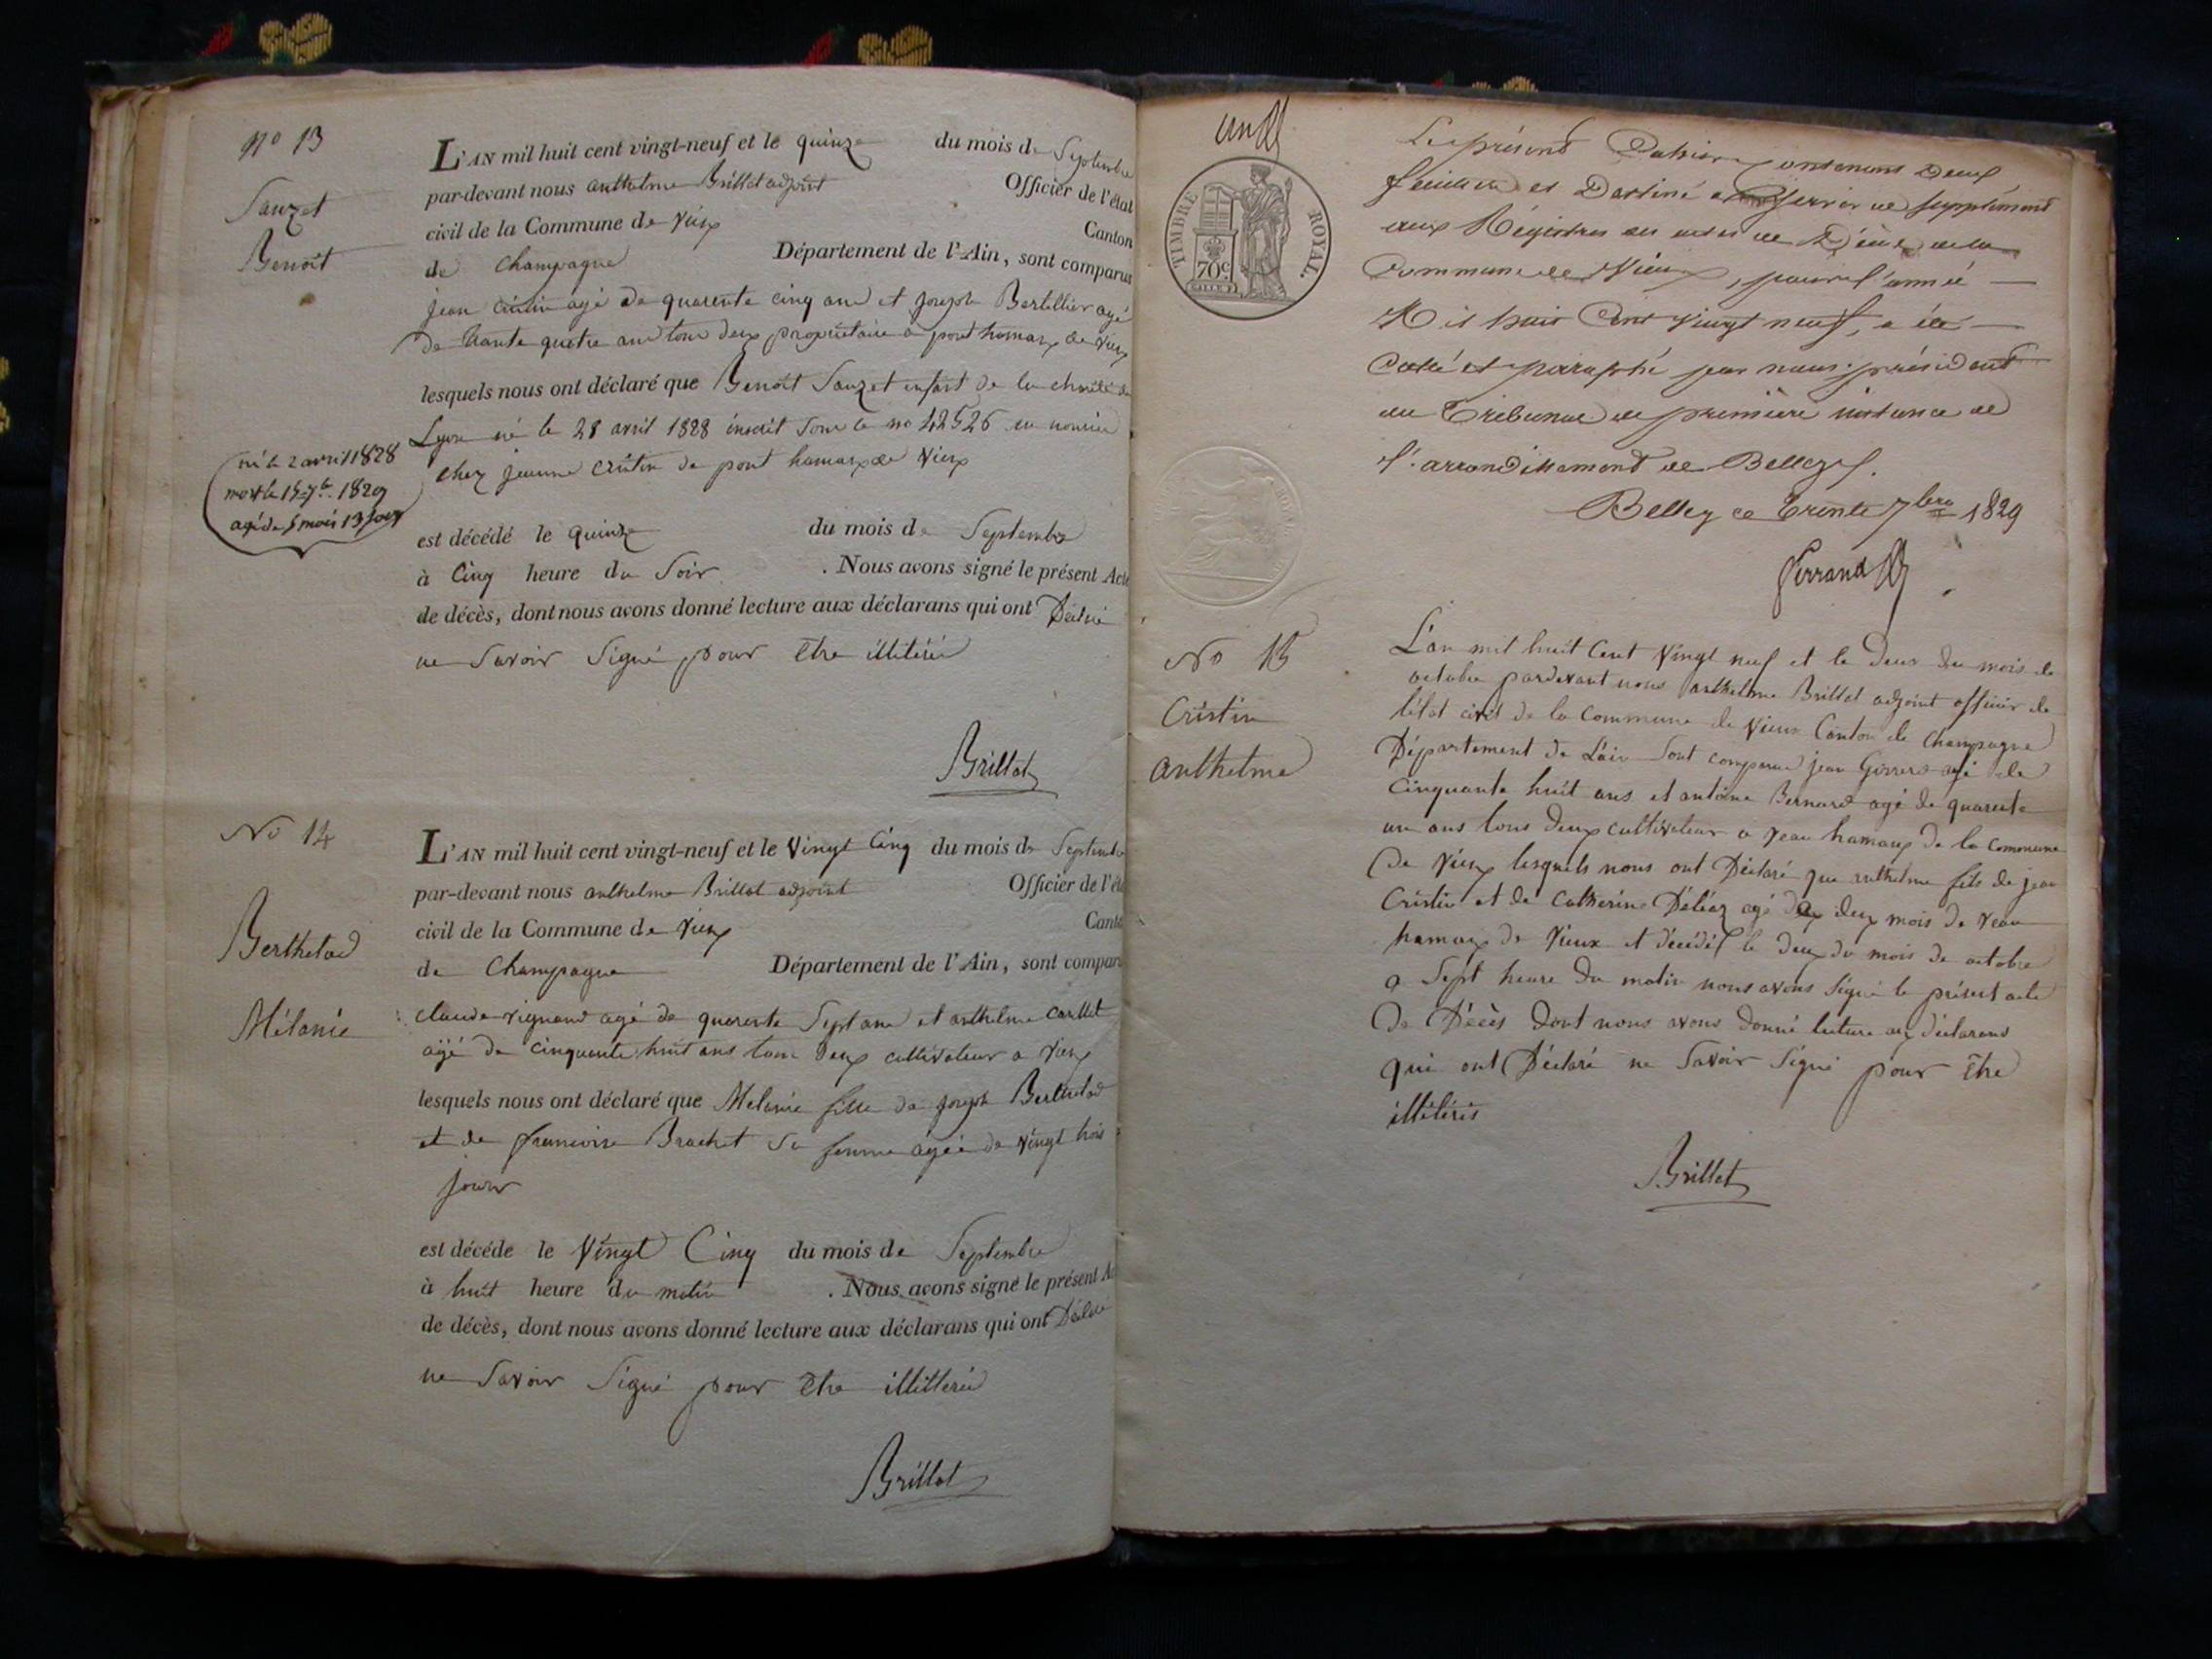 No 13
Sauzet
Benoit
L'AN mil huit cent vingt-neuf et le quinze du mois de Septembre
par-devant nous anthelme Brillat adjoint Officier de l'état
civil de la Commune de Vieux Canton
de Champagne Département de l'Ain, sont comparus
jean agé de quarente cinq ans et joseph Bertillier agé
De trante quatre ans tous deux propriétaire a pont hamaux de Vieux
lesquels nous ont déclaré que Benoit Sauzet enfant de la charité de
Lyon né le 28 avril 1828 inscrit sous le no 42526 en nourice
chez jeanne Cristin de pont hamaux de Vieux
né le 2 avril 1828
mort le 15 7bre 1829
agé de 5 mois 13 jours
est décédé le quinze du mois de Septembre
à Cinq heure du Soir . Nous avons signé le présent Acte
de décès, dont nous avons donné lecture aux déclarans qui ont Déclaré
ne Savoir Signé pour Etre illitéré
Brillat
No 14
Berthelod
Mélanie
L'AN mil huit cent vingt-neuf et le Vingt Cinq du mois de Septembre
par-devant nous anthelme Brillat adjoint Officier de l'éta
civil de la Commune de Vieux Canto
de Champagne Département de l'Ain, sont compar
claude vignand agé de quarente Sept ans et anthelme Carllet
agé de cinquante huit ans tous deux cultivateur a Vieux
lesquels nous ont déclaré que Melanie fille de joseph Berthelod
et de francoise Brachet sa femme agée de vingt trois
jours
est décédé le Vingt Cinq du mois de Septembre
à huit heure du matin . Nous avons signé le présent Ac
de décès, dont nous avons donné lecture aux déclarans qui ont Déclaré
ne Savoir Signé pour Etre illitteré
Brillat
un
TIMBRE ROYAL.
70c
Le présent Cahier contenant Deux
feuillets est Destiné a Servir de supplément
aux Régistres des actes de Décès de la
Commune de Vieux, pour l'année
Mil huit Cent vingt neuf, a été
Coté et paraphé par nous président
du Tribunal de première instance de
l'arrondissement de Belley.
Belley ce Trente 7bre 1829
Ferrand
No 15
Cristin
anthelme
L'an mil huit Cent Vingt neuf et le deux du mois de
octobre pardevant nous anthelme Brillat adjoint officier de
l'état civil de la Commune de Vieux Canton de Champagne
Département de L'ain Sont comparus jean Girrerd agé de
Cinquante huit ans et antoine Bernard agé de quarente
un ans tous deux cultivateur a Veau hamaux de la commune
De Vieux lesquels nous ont Déclaré que anthelme fils de jean
Cristin et de Catherine Déléaz agé de deux mois de Veau
hamaux de Vieux et décédé le deux du mois de octobre
a Sept heure du matin nous avons Signé le présent acte
De Décès Dont nous avons donné lecture aux déclarans
qui ont Déclaré ne Savoir Signé pour Etre
illitérés
Brillat